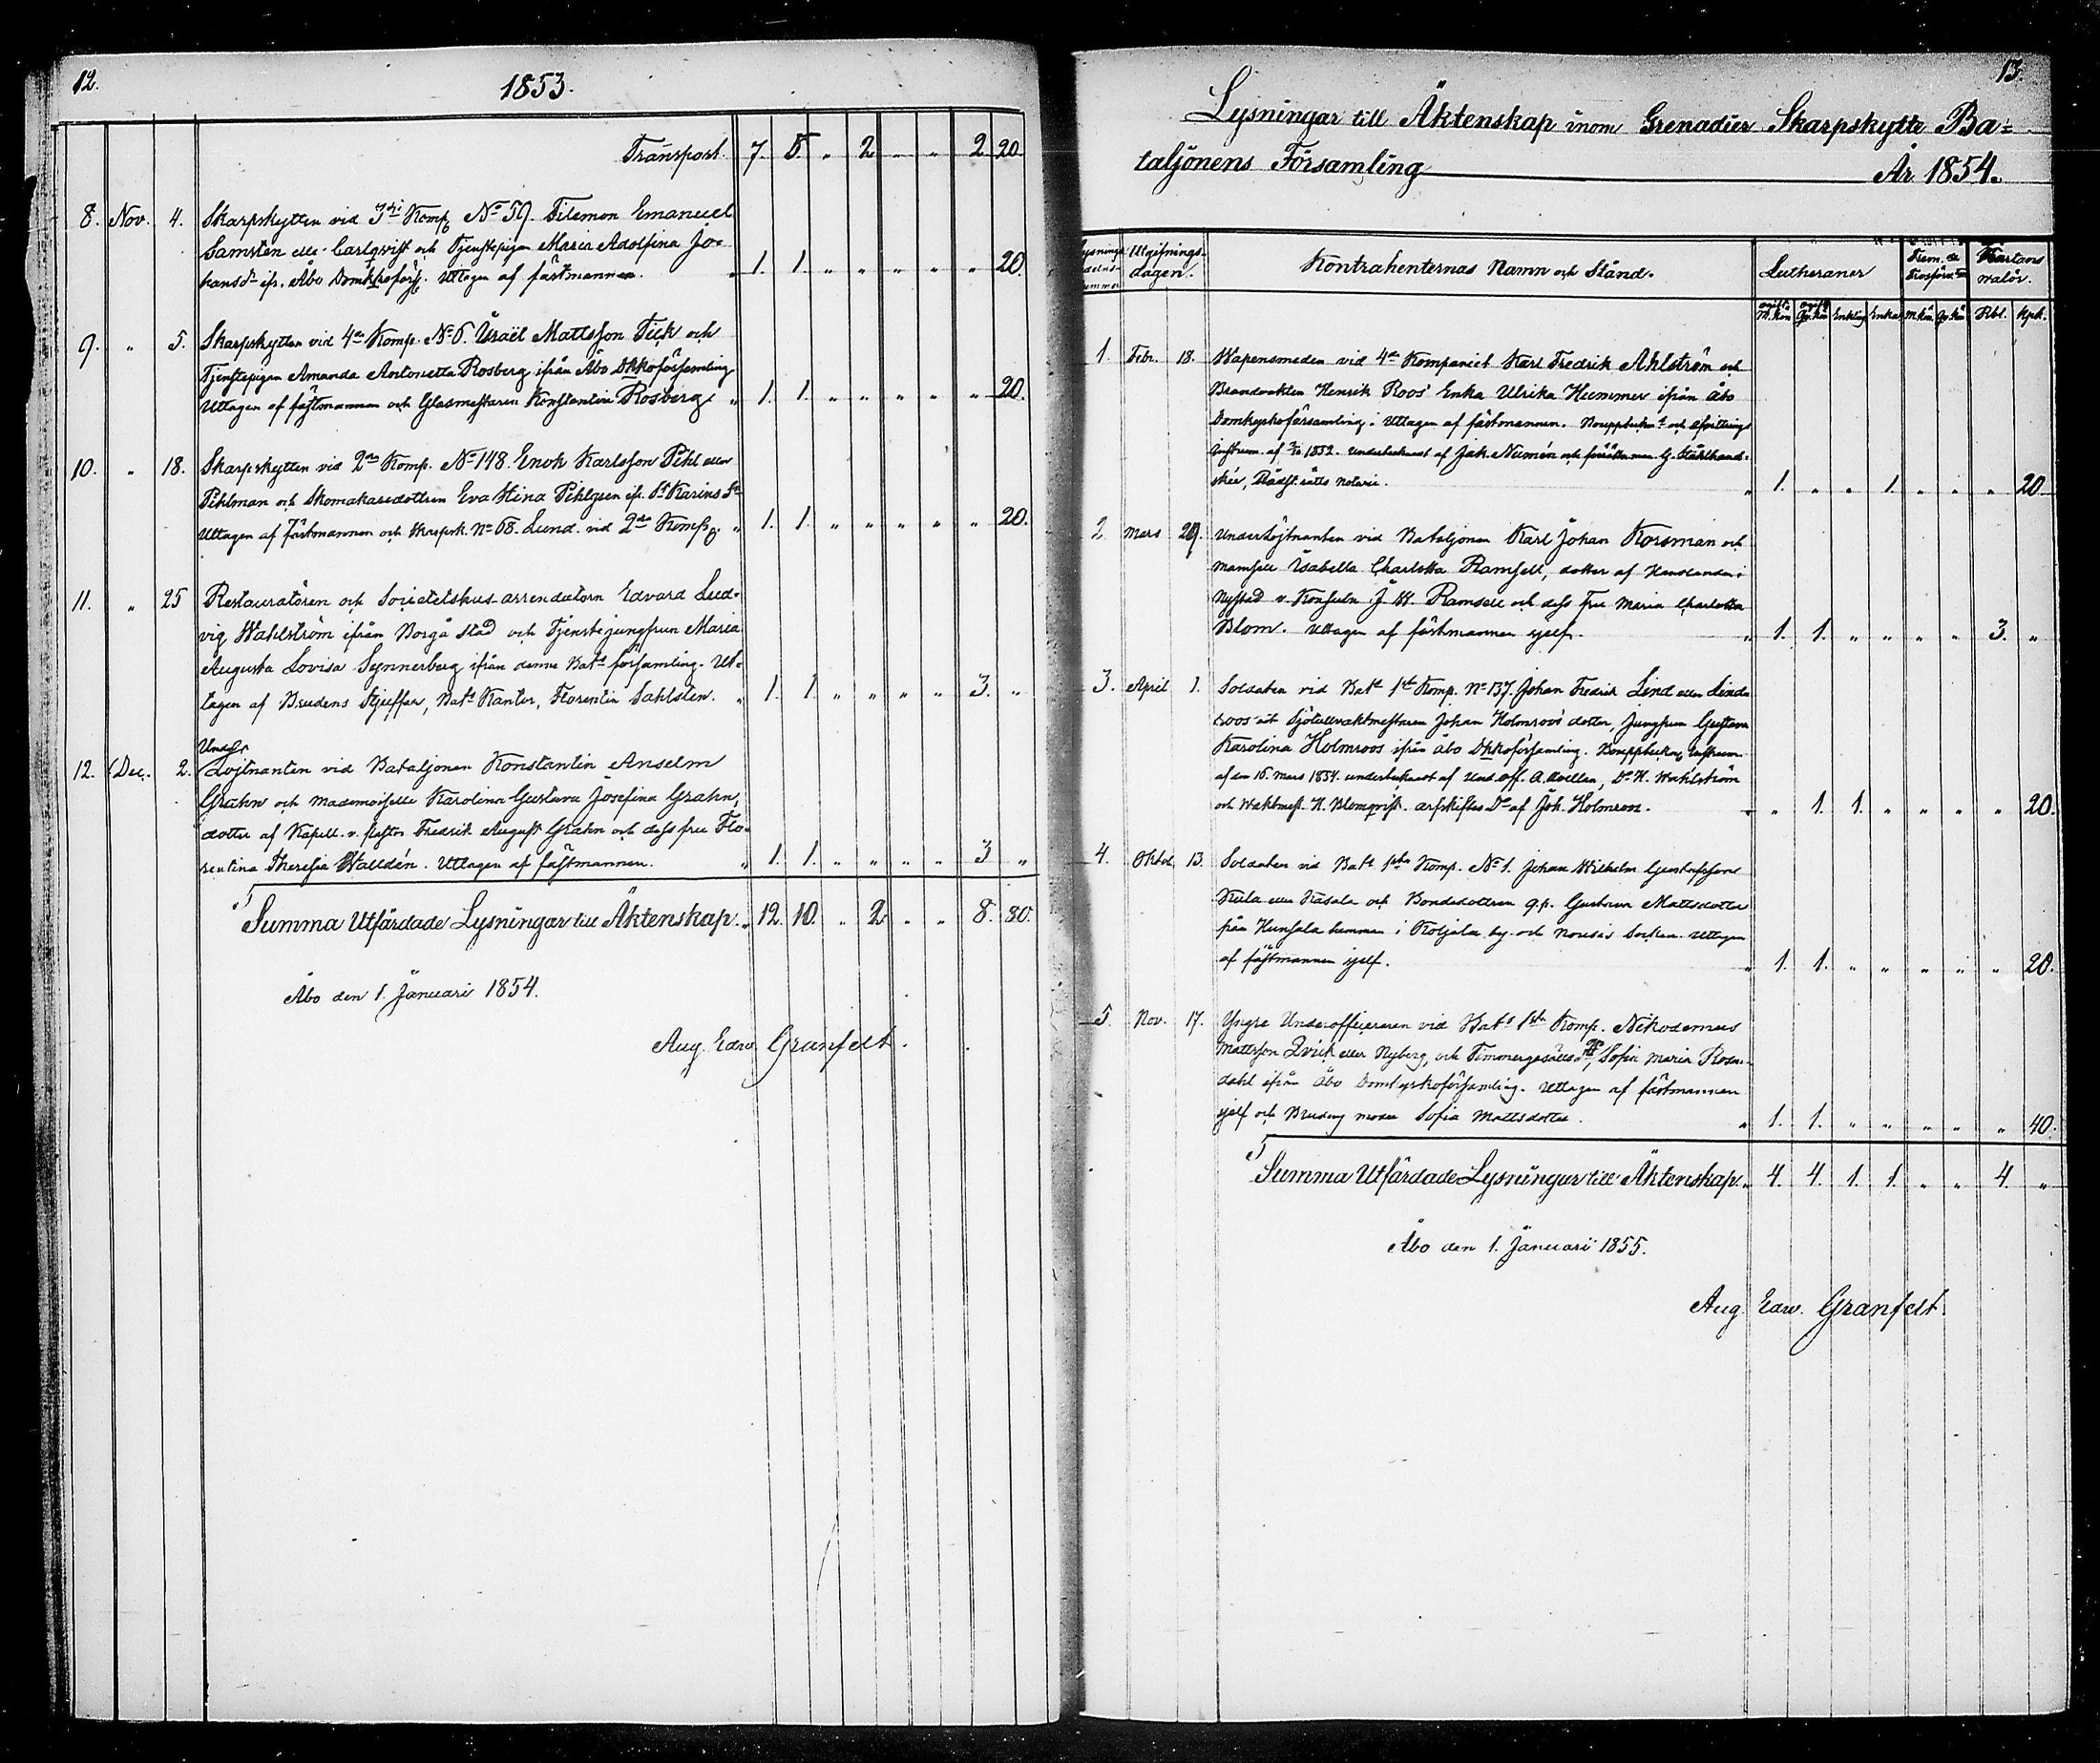 12.
1853.
Transport. 7. 5. „ 2 „ „ 2 20
8. Nov. 4. Skarpskytten vid 3dje Komp. No 59. Filemon Emanuel
Samstén eller Carlqvist och Tjenstepigan Maria Adolfina Jo-
hansdr ifr. Åbo Domk:koförs. Uttagen af fästmannen. „ 1. 1. „ „ „ „ „ 20.
9. „ 5. Skarpskytten vid 4de Komp. No 6. Israël Mattsson Fick och
Tjenstepigan Amanda Antonietta Rosberg ifrån Åbo Dkkoförsamling
Uttagen af fästmannen och Glasmestaren Konstantin Rosberg. „ 1. 1. „ „ „ „ „ 20.
10. „ 18. Skarpskytten vid 2dra Komp. No 148. Enok Karlsson Pihl eller
Pihlman och Skomakaredottren Eva Stina Pihlgren ifr. St Karins Sn
Uttagen af Fästmannen och Skarpsk. No 68. Lund. vid 2dra Komp. „ 1. 1. „ „ „ „ „ 20.
11. „ 25 Restauratören och Societetshus arrendatorn Edvard Lud-
vig Wahlström ifrån Borgå Stad och Tjenstejungfrun Maria
Augusta Lovisa Synnerberg ifrån denne Bats församling. Ut-
tagen af Brudens Styffar, Bats Kantor, Florentin Sahlsten. „ 1. 1. „ „ „ „ 3. „
Under
12. Dec. 2. Löjtnanten vid Bataljonen Konstantin Anselm
Grahn och Mademoiselle Karolina Gustava Josefina Grahn,
dotter af Kapell. v. Pastor Fredrik August Grahn och dess fru Flo-
rentina Theresia Walldén. Uttagen af fästmannen. „ 1. 1. „ „ „ „ 3 „
Summa Utfärdade Lysningar till Äktenskap. „ 12. 10. „ 2 „ „ 8. 80.
Åbo den 1. Januari 1854.
Aug. Edw. Granfelt.
13.
Lysningar till Äktenskap inom Grenadier Skarpskytte Ba-
taljonens Församling År 1854.
Lysnings Utgifnings-
dagen. Kontrahenternas Namn och Stånd. Lutheraner Främ. Kartans
valör.
M. kön Qv. kön Enkling Enka M. kön Qv. kön Rbl. Kpk.
1. Febr. 18. Wapensmeden vid 4de Kompaniet Karl Fredrik Ahlström och
Brandvakten Henrik Roos' Enka Ulrika Hummer ifrån Åbo
Domkyrkoförsamling. Uttagen af fästmannen. Bouppteckn. och afvittrings
Instrum. af 1852. undertecknadt af Jak. Numén och G. Stålhand-
ske, Rådst. rätts Notarie. „ 1. „ „ 1. „ „ „ 20
2. Mars 29. Underlöjtnanten vid Bataljonen Karl Johan Korsman och
Mamsell Isabella Charlotta Ramsell, dotter af Handlanden i
Nystad v. Konsuln J. W. Ramsell och dess Fru Maria Charlotta
Blom. Uttagen af fästmannen sjelf. „ 1. 1. „ „ „ „ 3. „
3. April 1. Soldaten vid Bats 1sta Komp. No 137. Johan Fredrik Lind eller Lind-
roos och Sjötullvaktmestaren Johan Holmroos' dotter, Jungfrun Gustava
Karolina Holmroos ifrån Åbo Dkkoförsamling. Bouppteckn. Instrum.
af den 16. Mars 1854. undertecknadt af Und. off. A. Avellan, Do H. Wahlström
och Waktmest. H. Blomqvist. arfskiftes Do af Joh. Holmroos. „ „ 1. 1. „ „ „ „ 20.
4. Oktob. 13. Soldaten vid Bats 1sta Komp. No 1. Johan Wilhelm Gustafsson
Kula eller Kasala och Bondedottren q.p. Gustava Mattsdotter
från Hunsala hemman i Koljola by och Nousis Socken. Uttagen
af fästmannen sjelf. „ 1. 1. „ „ „ „ „ 20.
5. Nov. 17. Yngre Underofficeraren vid Bats 1sta Komp. Nikodemus
Mattsson Qvick eller Nyberg, och Timmergesälls dtr, Sofia Maria Rosen-
dahl ifrån Åbo Domkyrkoförsamling. Uttagen af fästmannen
sjelf och Brudens moder Sofia Mattsdotter. „ 1. 1. „ „ „ „ „ 40.
Summa Utfärdade Lysningar till Äktenskap. „ 4. 4. 1. 1. „ „ 4. „
Åbo den 1. Januari 1855.
Aug. Edw. Granfelt.